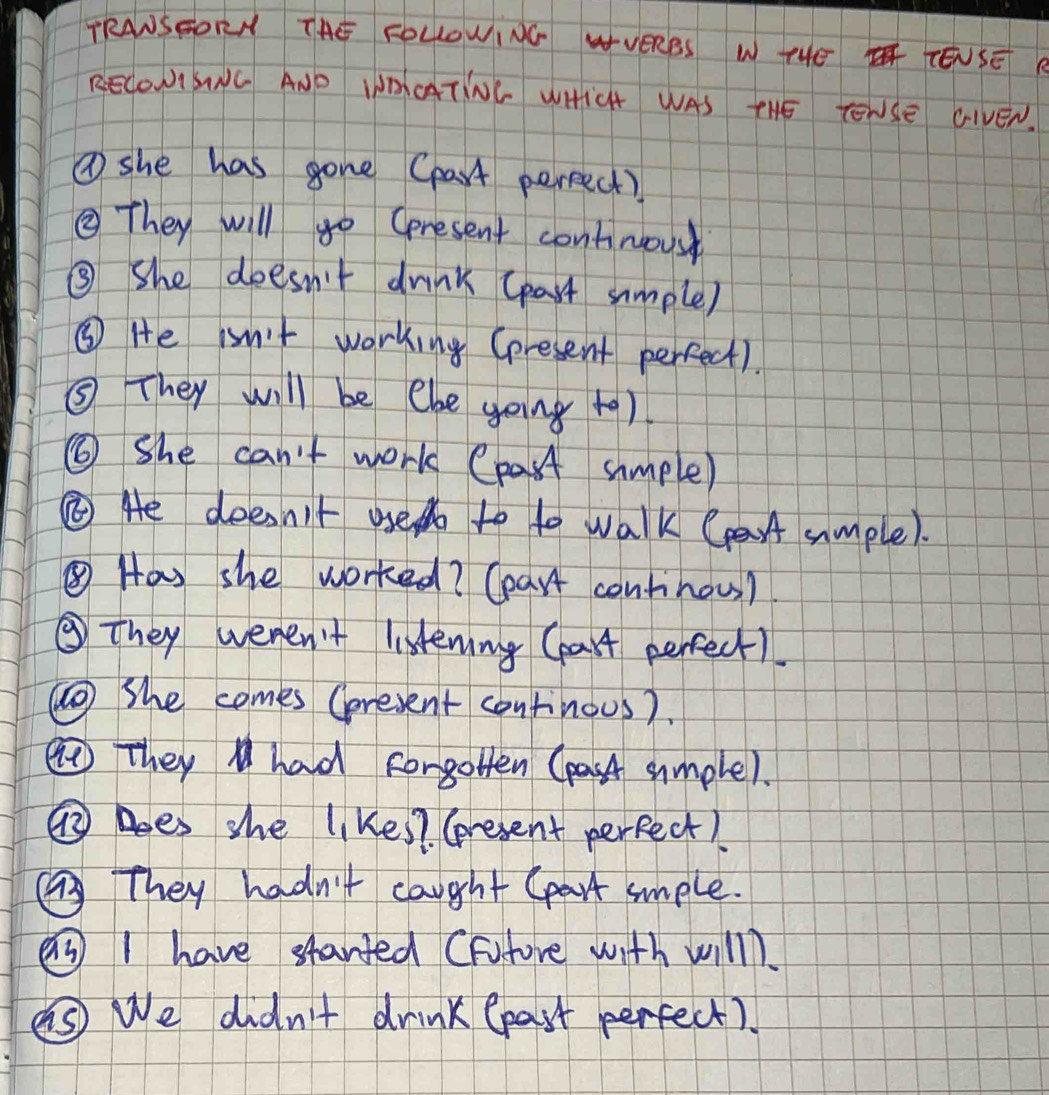 TRANSFORM THE FOLLOWING VERBS IN THE TENSE
RECONISING AND INDICATING WHICH WAS THE TENSE GIVEN.
① She has gone (past perfect).
② They will go (present continous)
③ She doesn't drink (past simple)
④ He isn't working (present perfect).
⑤ They will be (be going to).
⑥ She can't work (past simple)
He doesn't use to to walk (past simple).
⑧ Has she worked? (past continous).
⑨ They weren't listening (past perfect).
⑩ She comes (present continous).
⑪ They had forgotten (past simple).
⑫ Does she likes? (present perfect).
⑬ They hadn't caught (past simple.
⑭ I have started (Future with will).
⑮ We didn't drink (past perfect).